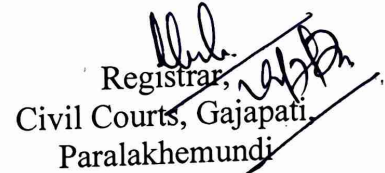 Registrar,
Civil Courts, Gajapati,
Paralakhemundi